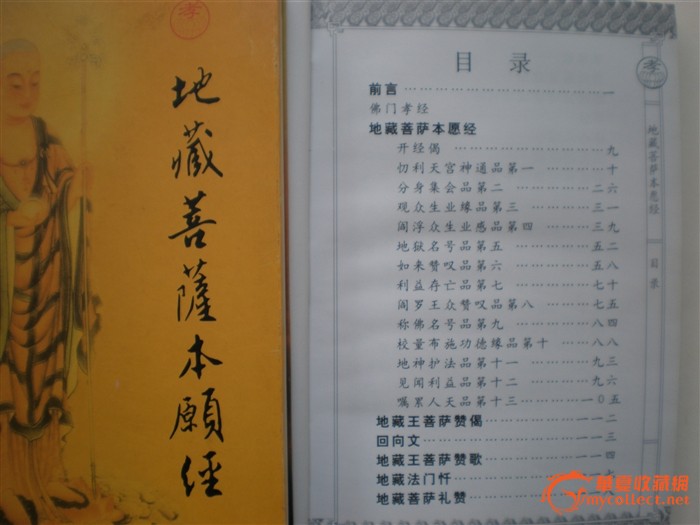 孝
地藏菩薩本願经
目录
前言 …………………………… 一
佛门孝经
地藏菩萨本愿经
开经偈 ………… 九
切利天宫神通品第一 ………… 十
分身集会品第二 ………… 二六
观众生业缘品第三 ………… 三一
阎浮众生业感品第四 ………… 三九
地狱名号品第五 ………… 五二
如来赞叹品第六 ………… 五八
利益存亡品第七 ………… 七十
阎罗王众赞叹品第八 ………… 七五
称佛名号品第九 ………… 八四
校量布施功德缘品第十 ………… 八八
地神护法品第十一 ………… 九三
见闻利益品第十二 ………… 九六
嘱累人天品第十三 ………… 一0五
地藏王菩萨赞偈 ………… 一一二
回向文 ………… 一一三
地藏王菩萨赞歌 ………… 一一四
地藏法门忏
地藏菩萨礼赞
孝
地藏菩萨本愿经
目录
华夏收藏網
mycollect.net